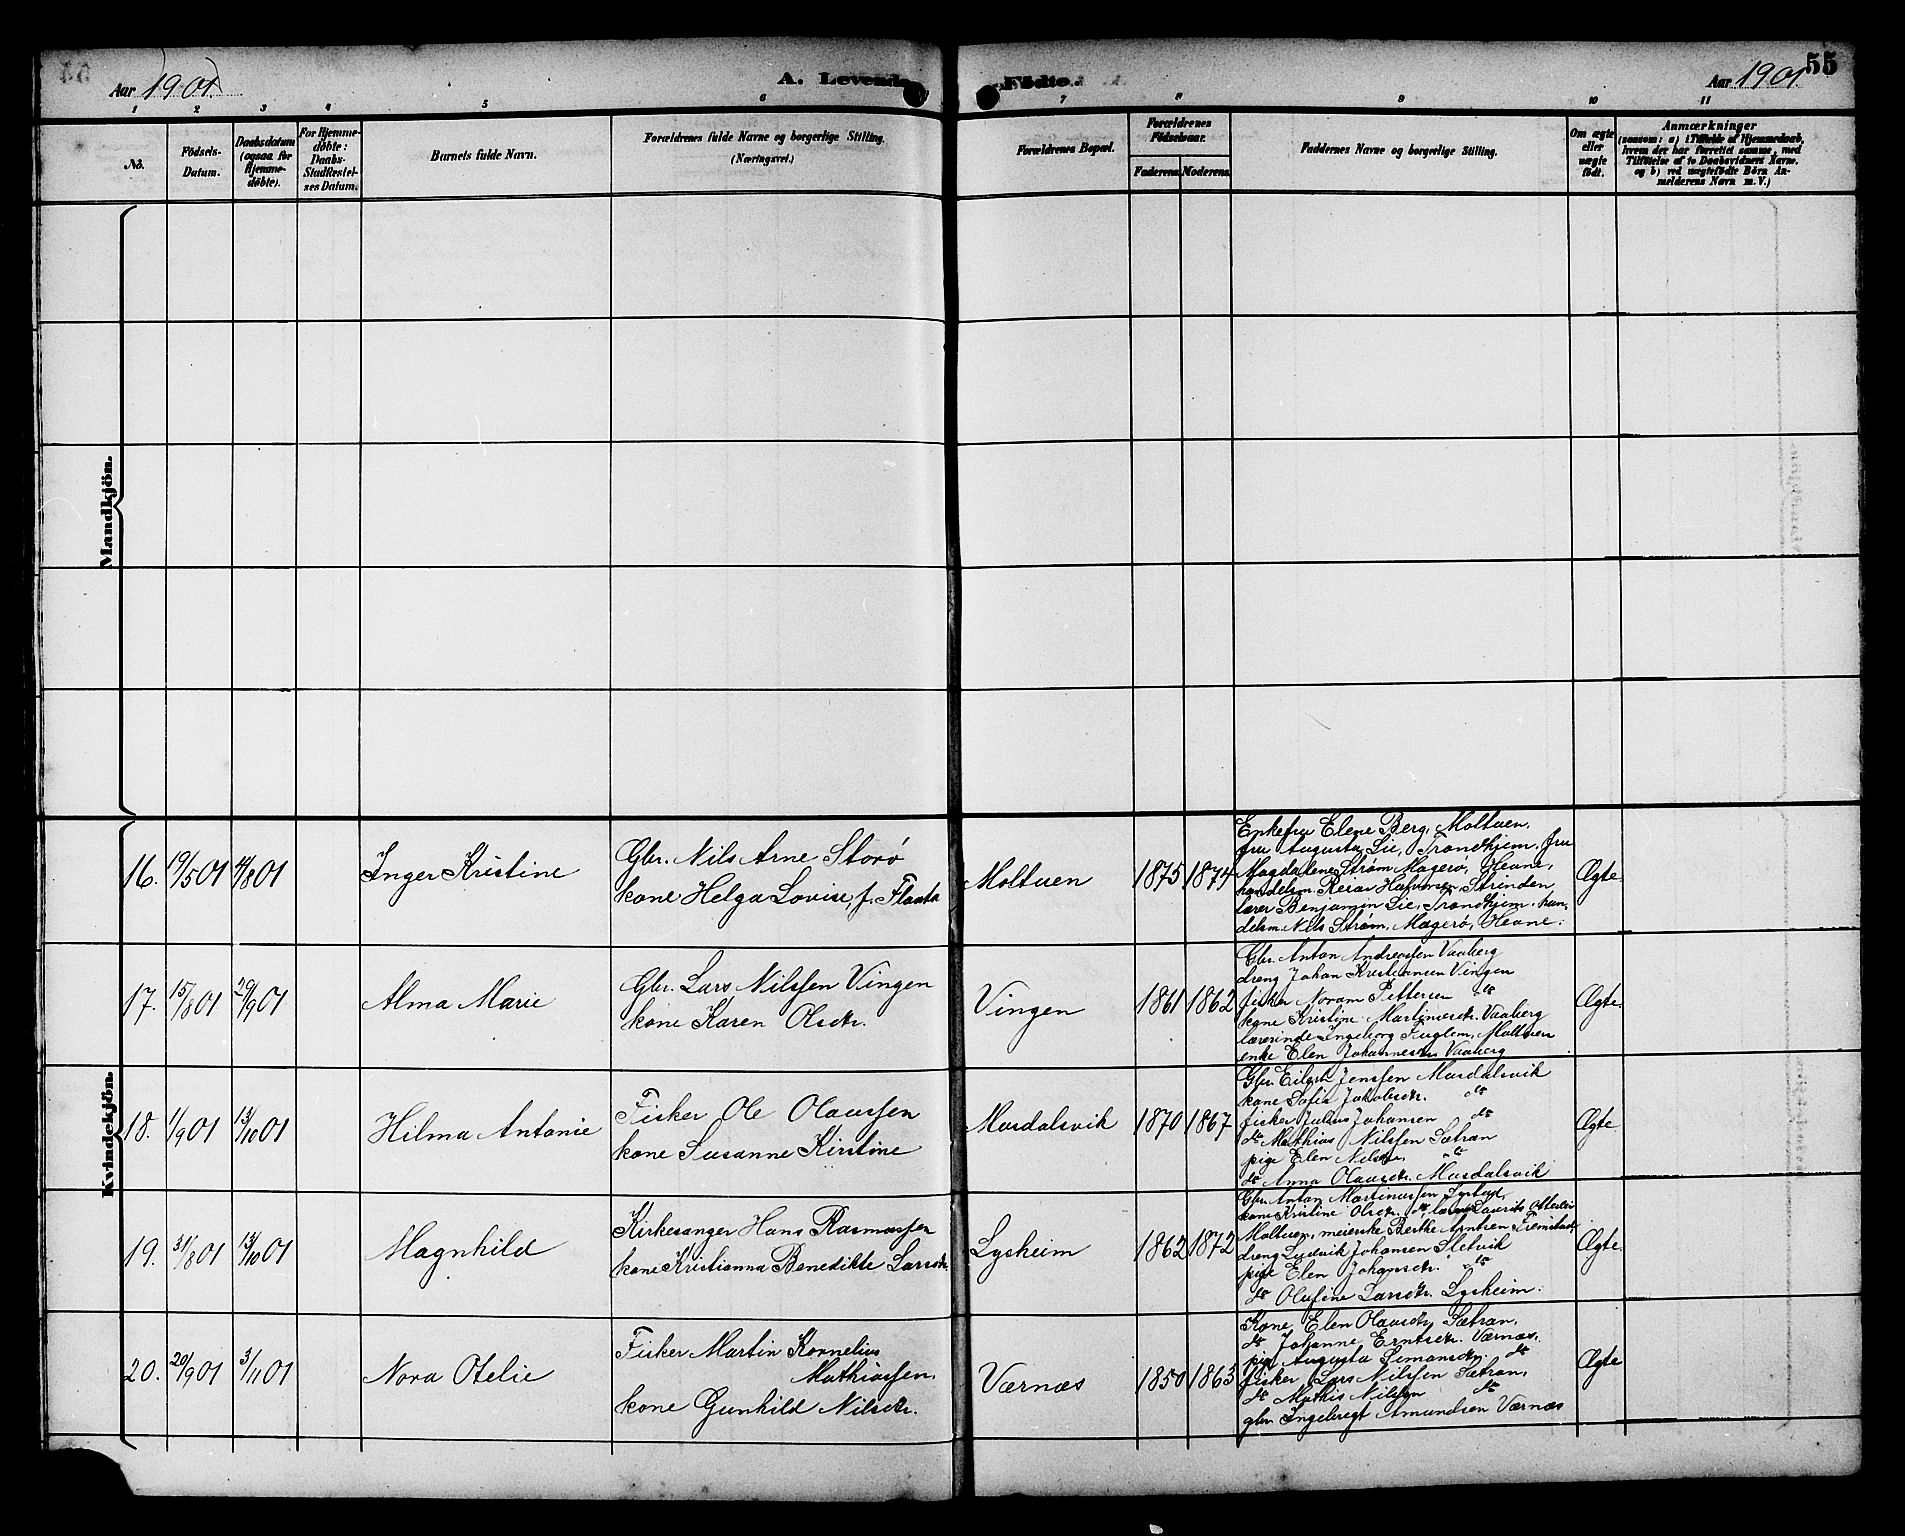 55
Aar 1901.
A. Levende Födte.
Aar 1901.
1 2 3 4 5 6 7 8 9 10 11
No.
Födsels-Datum.
Daabsdatum (ogsaa for Hjemme-döbte).
For Hjemme-döbte: Daabs-Stadfæstel-ses Datum.
Barnets fulde Navn.
Forældrenes fulde Navne og borgerlige Stilling. (Næringsvei.)
Forældrenes Bopæl.
Forældrenes Födselsaar.
Faderens. Moderens.
Faddernes Navne og borgerlige Stilling.
Om ægte eller uægte födt.
Anmærkninger
(saasom: a) i Tilfælde af Hjemmedaab,
hvem der har forrettet samme, med
Tilföielse af to Daabsvidners Navne.
og b) ved uægtefödte Börn An-
melderens Navn m. V.)
Mandkjön.
Kvindekjön.
16. 19/5 01 4/8 01
Inger Kristine
Gbr. Nils Arne Storø
kone Helga Lovise, f. Flaata
Moltuen
1875 1874
Enkefru Elene Berg, Moltuen,
fru Augusta Lie, Trondhjem, fru
Magdalene Strøm, Magerø, Hevne,
handelsm. Halvorsen, Strinden
lærer Benjamin Lie, Trondhjem, han-
delsm. Nils Strøm, Magerø, Hevne.
Ægte
17. 15/8 01 29/9 01
Alma Marie
Gbr. Lars Nilssen Vingen
kone Karen Olsdtr.
Vingen
1861 1862
Gbr. Anton Andreassen Vaaberg
dreng Johan Kristiansen Vingen
fisker Pettersen do
kone Kristine Martinusdtr. Vaaberg
lærerinde Ingeborg Fuglem, Moltuen
enke Elen Johannesdtr. Vaaberg
Ægte.
18. 1/9 01 13/10 01
Hilma Antonie
Fisker Ole Olaussen
kone Susanne Kirstine
Mordalsvik
1870 1867
Gbr. Eilert Jenssen Mordalsvik
kone Sofie Jakobsdtr. do
fisker Julius Johansen do
do Mathias Nilssen Sætran
pige Elen Nilsdtr. do
do Anna Olausdtr. Mordalsvik
Ægte
19. 31/8 01 13/10 01
Magnhild
Kirkesanger Hans Rasmussen
kone Kristianna Benedikte Larsdtr.
Lysheim
1862 1872
Gbr. Anton Martinussen
kone Kristine Olsdtr. do lærer Laurits
Moltuen, meierske Berthe Arntsen
dreng Ludvik Johansen Sletvik
pige Elen Johansdtr. do
do Olufine Larsdtr. Lysheim.
Ægte
20. 20/9 01 3/11 01
Nora Otelie
Fisker Martin Kornelius
Mathiassen,
kone Gunhild Nilsdtr.
Værnæs
1850 1863
Kone Elen Olausdtr. Sætran,
do Johanne Erntsdtr. Værnæs,
pige Augusta Simonsdtr. do
fisker Lars Nilssen Sætran,
do Mathis Nilssen do
gbr. Ingebrigt Amundsen Værnæs
Ægte